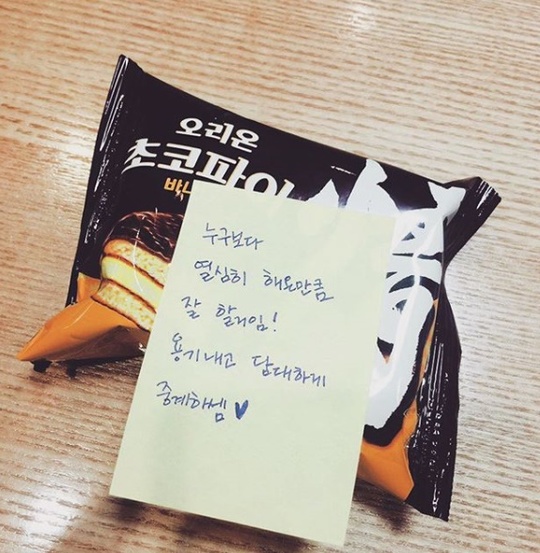 오리온
초코파이
바나
情
누구보다
열심히 해온만큼
잘 할거임!
용기내고 담대하게
중계하셈 ♥